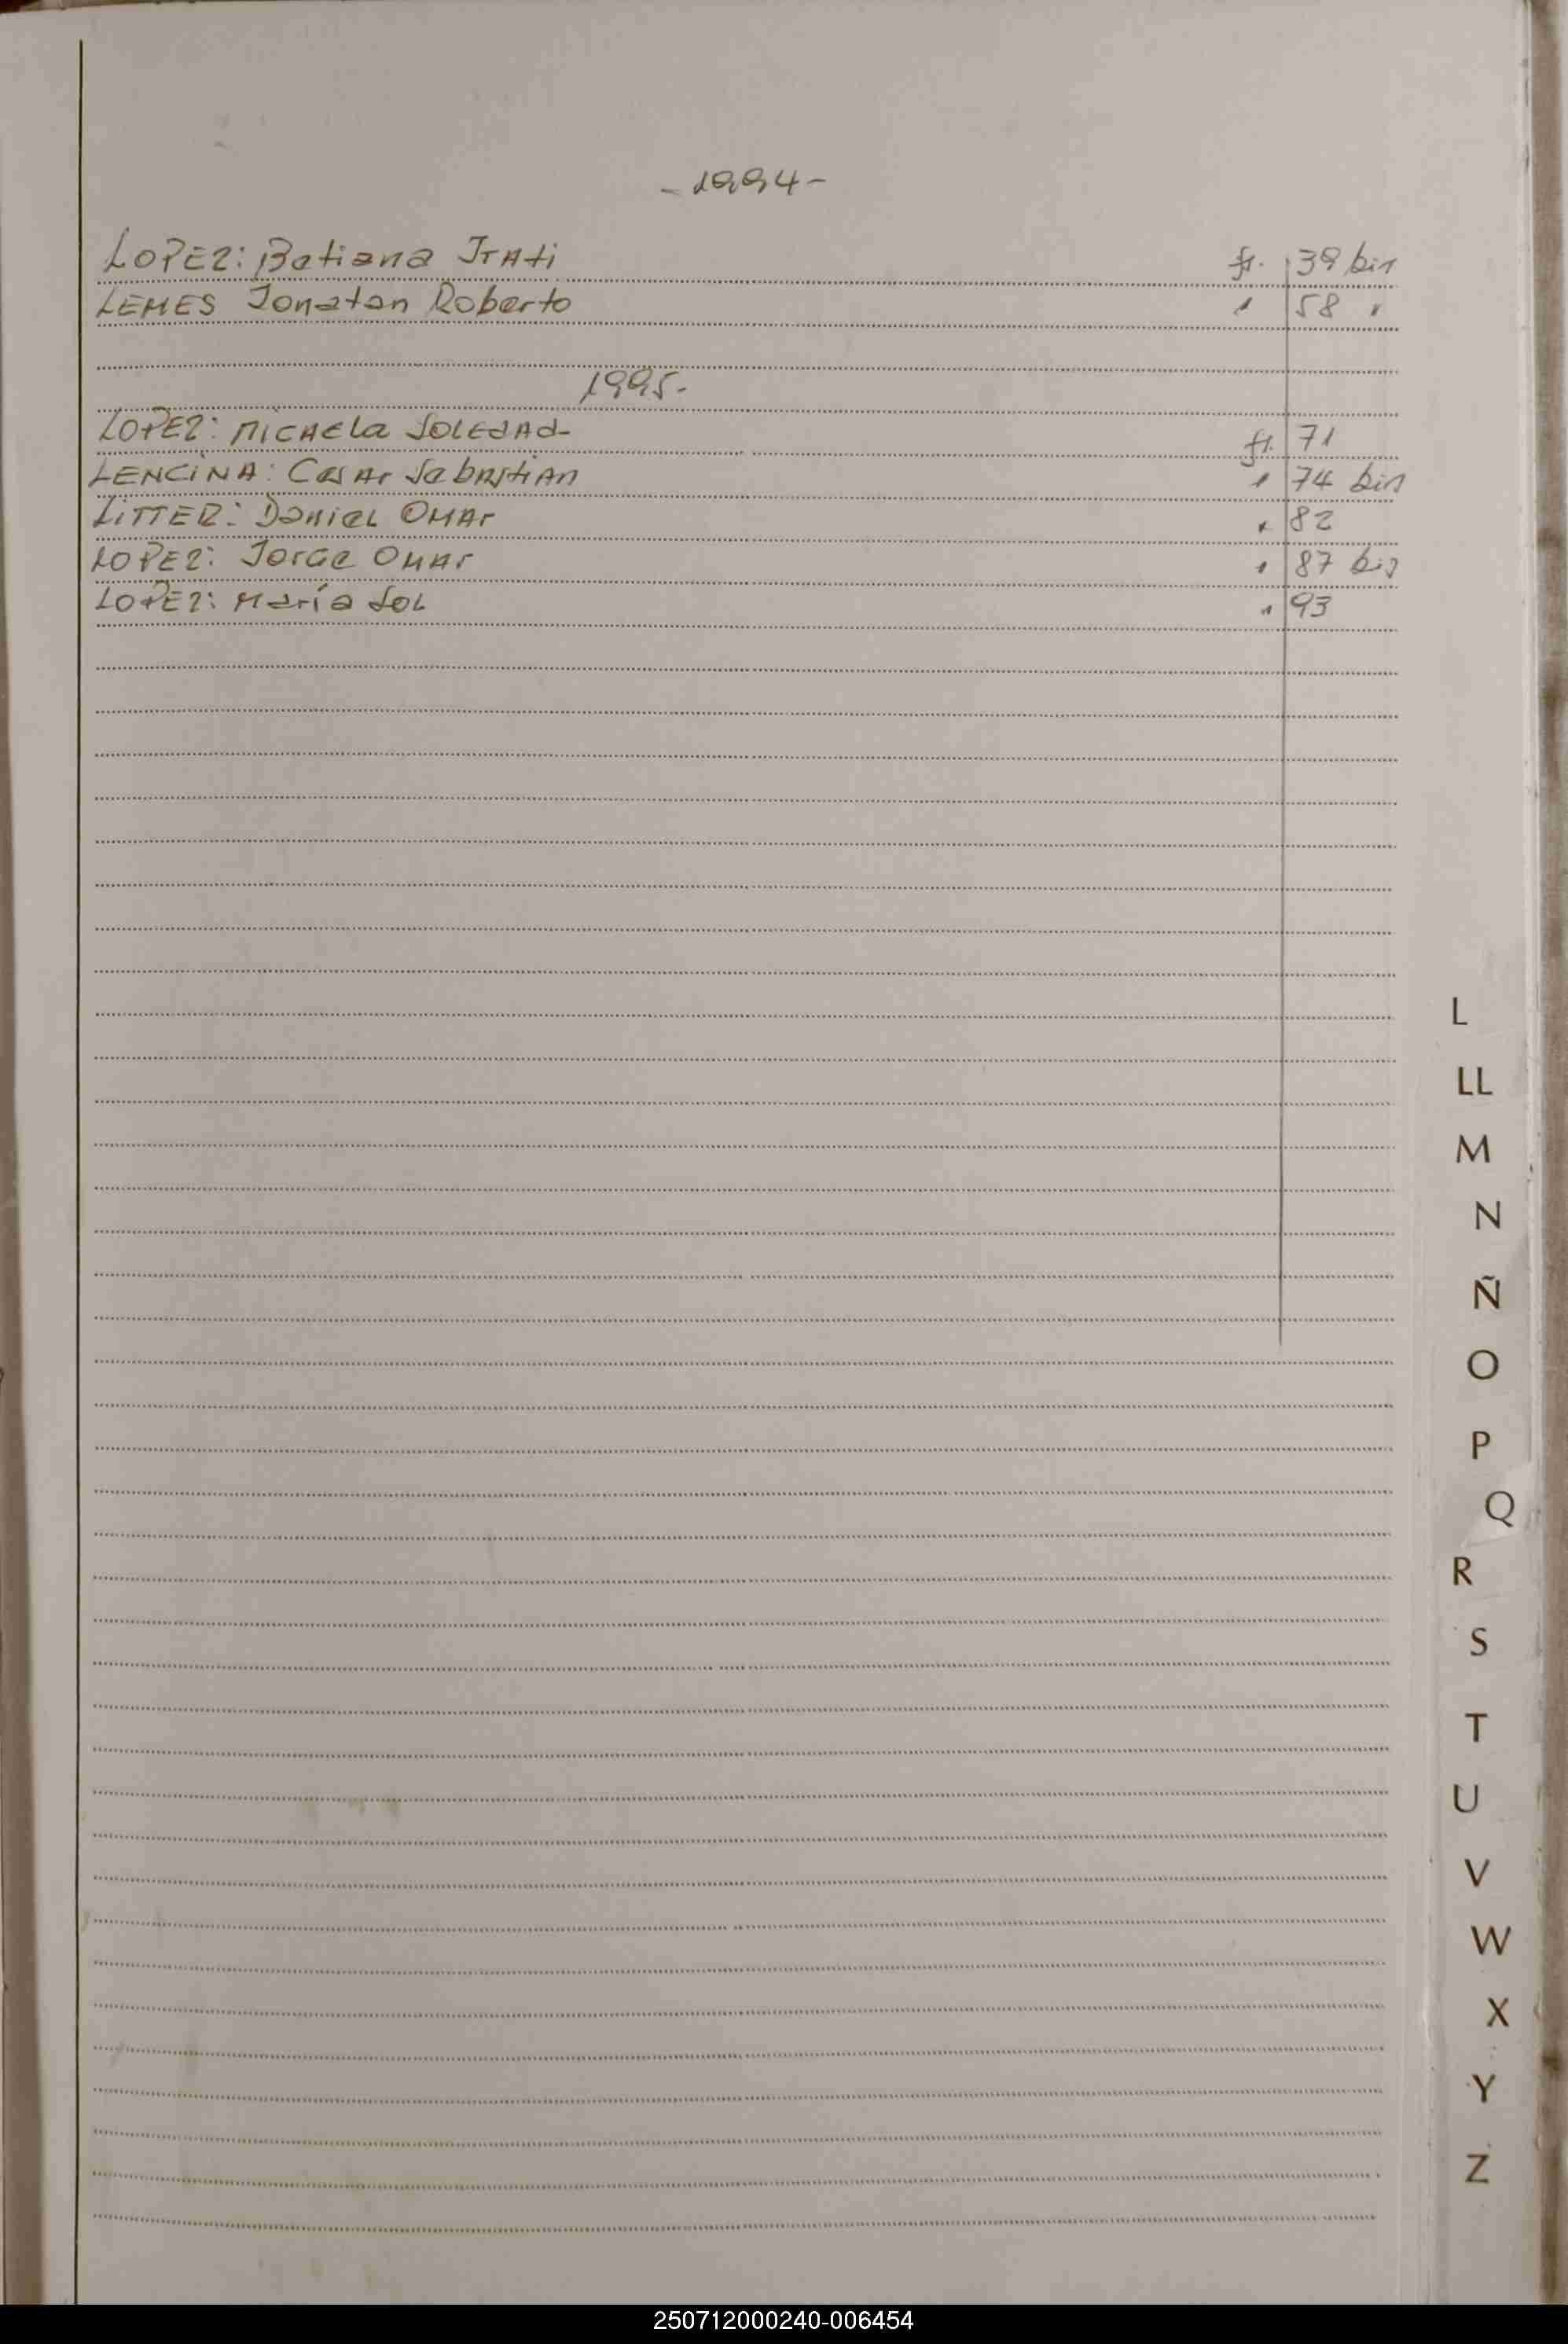 - 1994 -
LOPEZ: Batiana Irati fs. 39 bis
LEMES Jonatan Roberto " 58 "
1995.-
LOPEZ: Micaela Soledad fs. 71
LENCINA: Cesar Sebastian " 74 bis
LITTER: Daniel Omar " 82
LOPEZ: Jorge Omar " 87 bis
LOPEZ: María Sol " 93
L
LL
M
N
Ñ
O
P
Q
R
S
T
U
V
W
X
Y
Z
250712000240-006454